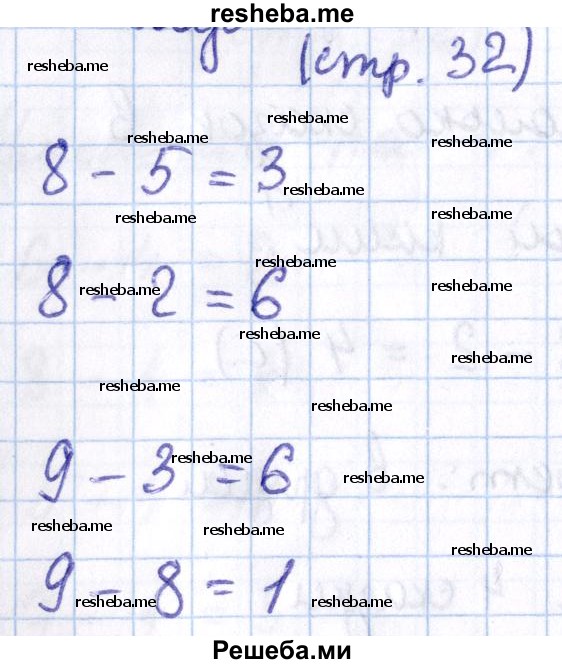 resheba.me
(стр. 32)
resheba.me
resheba.me
resheba.me
resheba.me
8 - 5 = 3
resheba.me
resheba.me
resheba.me
resheba.me
8 - 2 = 6
resheba.me
resheba.me
resheba.me
resheba.me
resheba.me
resheba.me
9 - 3 = 6
resheba.me
resheba.me
resheba.me
resheba.me
resheba.me
9 - 8 = 1
resheba.me
resheba.me
Решеба.ми